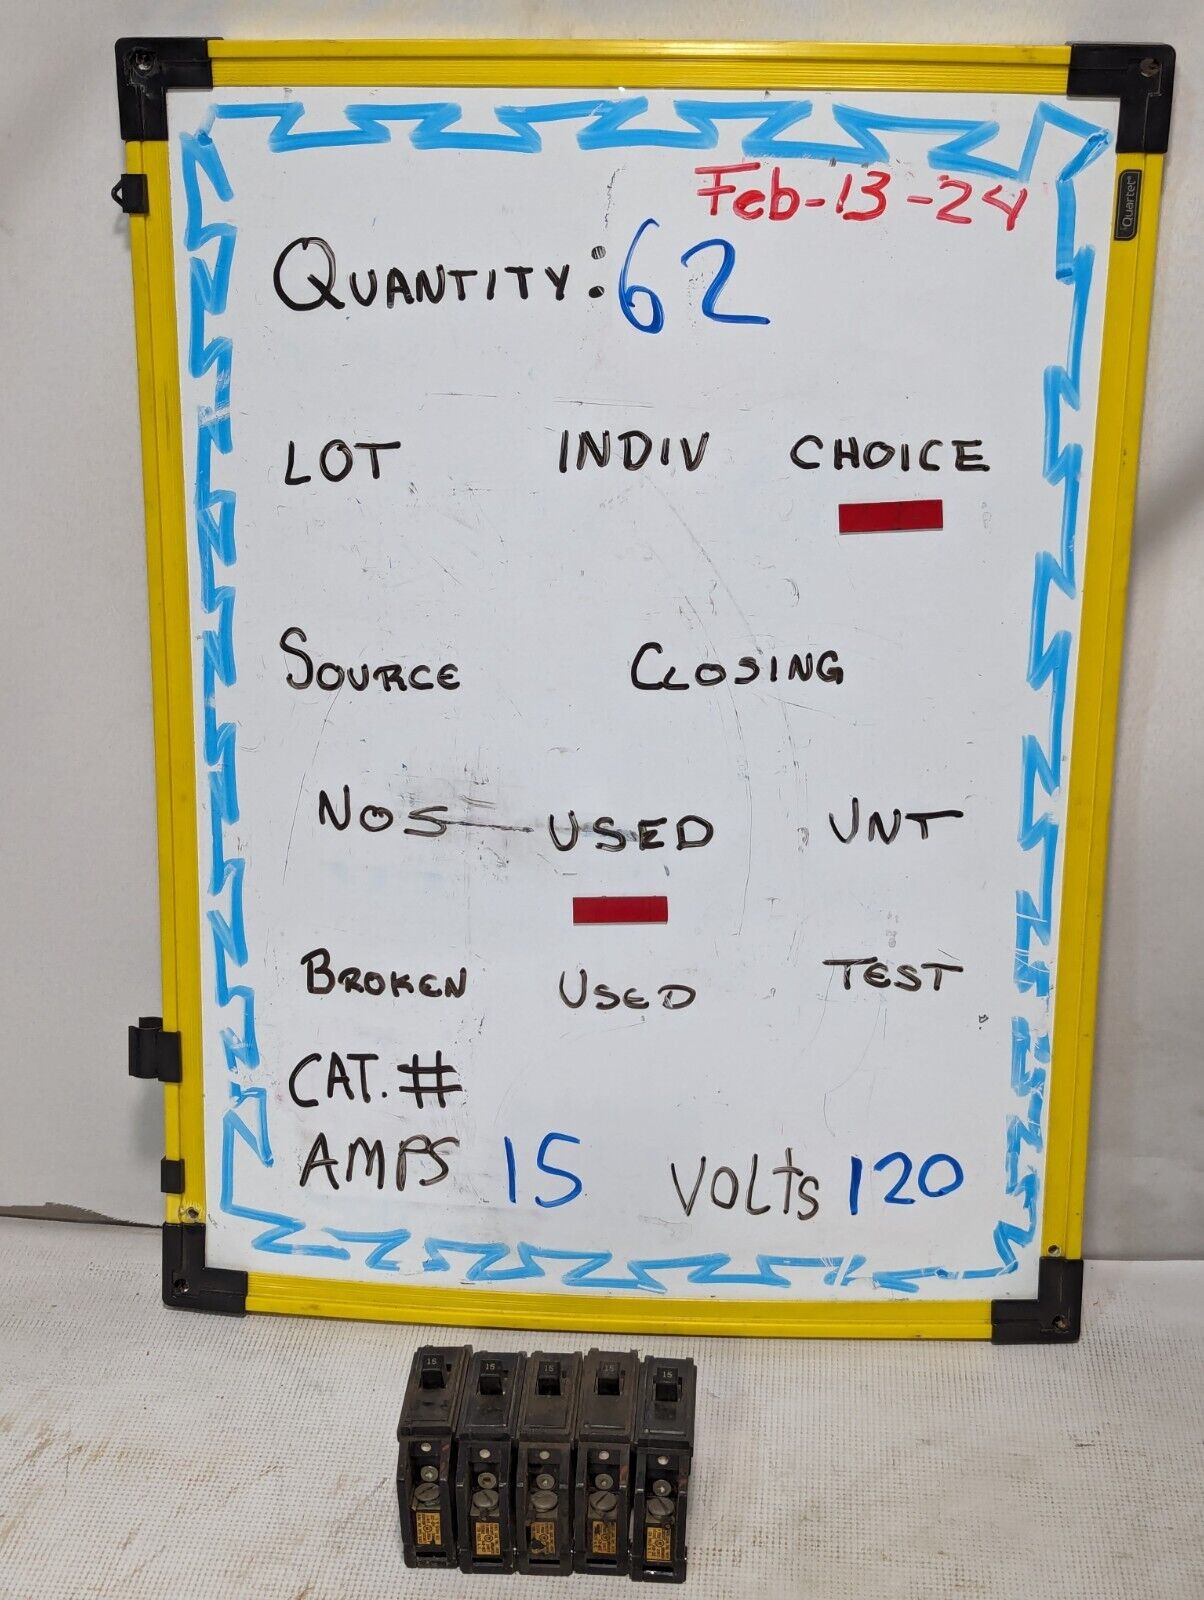 Feb-13-24
Quartet
QUANTITY: 62
LOT INDIV CHOICE
SOURCE CLOSING
NOS USED UNT
BROKEN USED TEST
CAT. #
AMPS 15 VOLTS 120
15 15 15 15 15